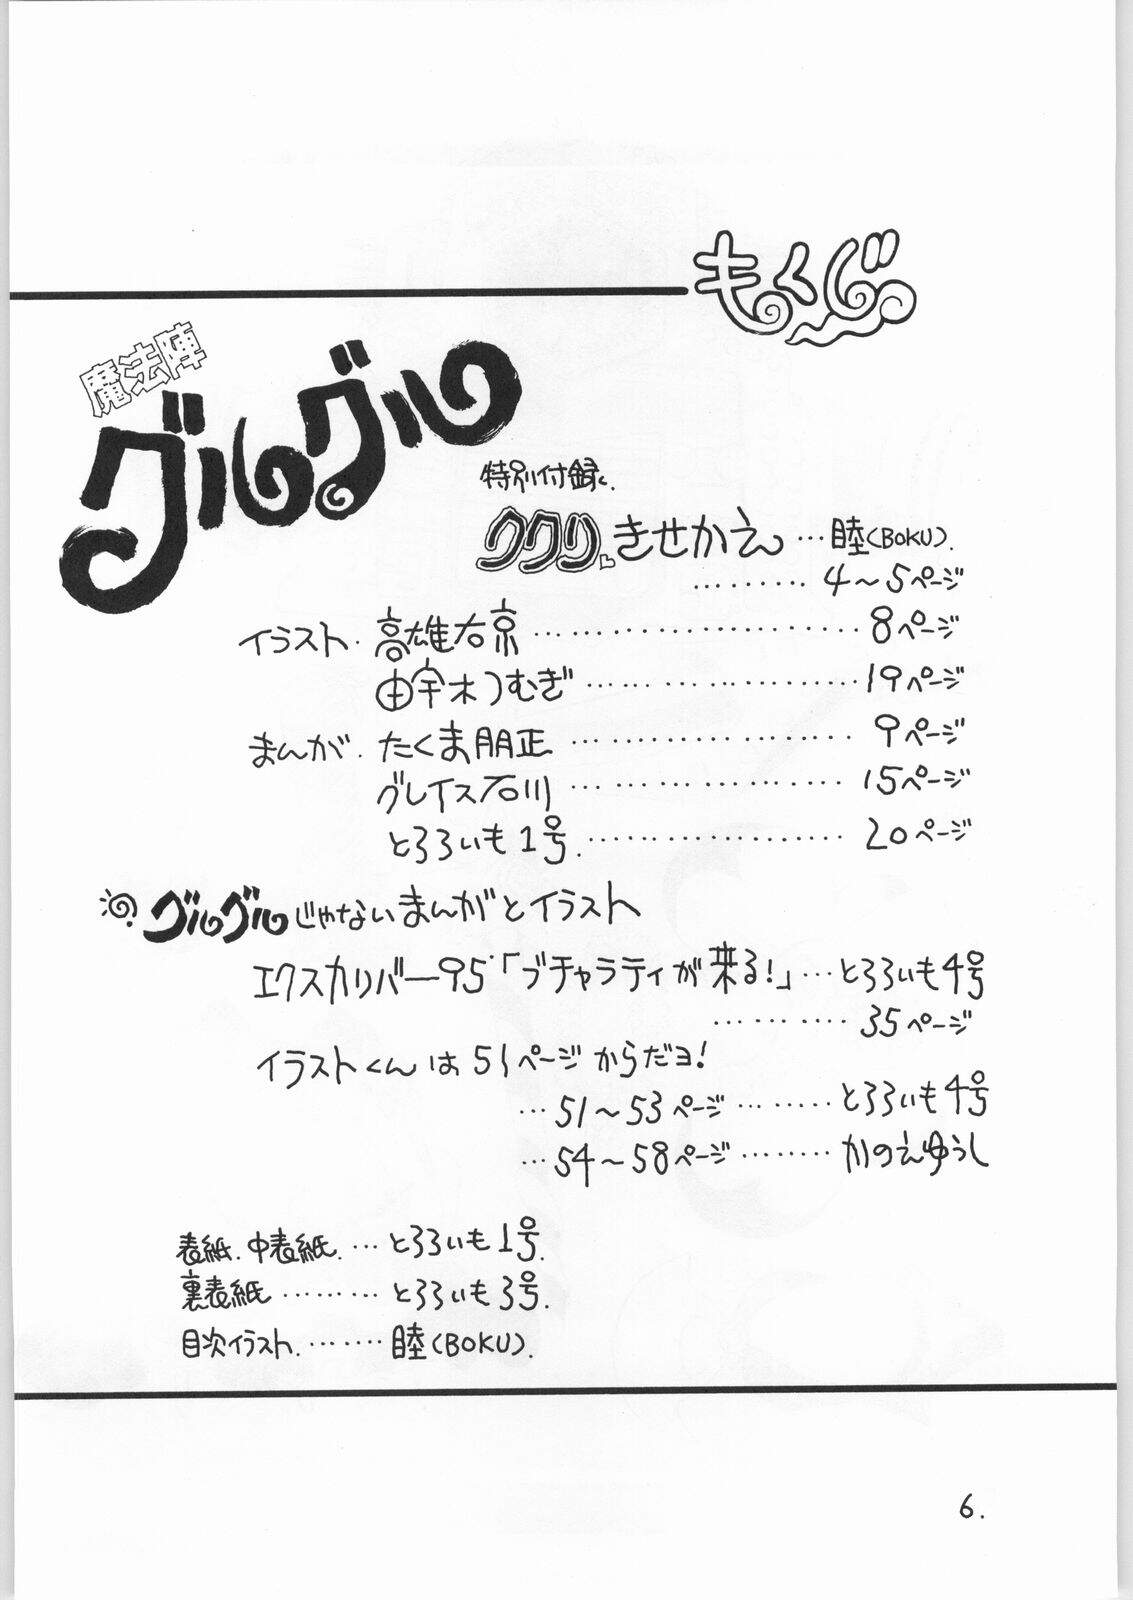 もくじ
魔法陣
グルグル
特別付録
ククリ きせかえ … 睦(BOKU).
……… 4～5ページ
イラスト. 高雄右京 ………………………… 8ページ
由宇木つむぎ …………………… 19ページ
まんが. たくま朋正 …………………… 9ページ
グレイス石川 …………………… 15ページ
とろろいも1号. …………………… 20ページ
グルグルじゃないまんがとイラスト
エクスカリバー95'「ブチャラティが来る!」…とろろいも4号
………… 35ページ
イラストくんは51ページからだヨ!
…51～53ページ ……… とろろいも4号
…54～58ページ ……… かのえゆうし
表紙.中表紙. … とろろいも1号.
裏表紙 ……… とろろいも3号.
目次イラスト. ……… 睦(BOKU).
6.